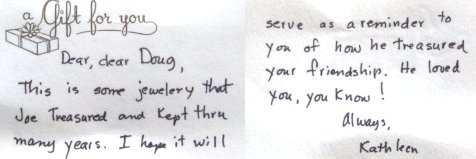 a Gift for you
Dear, dear Doug,
This is some jewelery that
Joe Treasured and Kept thru
many years. I hope it will
serve as a reminder to
you of how he treasured
your friendship. He loved
you, you know!
Always,
Kathleen